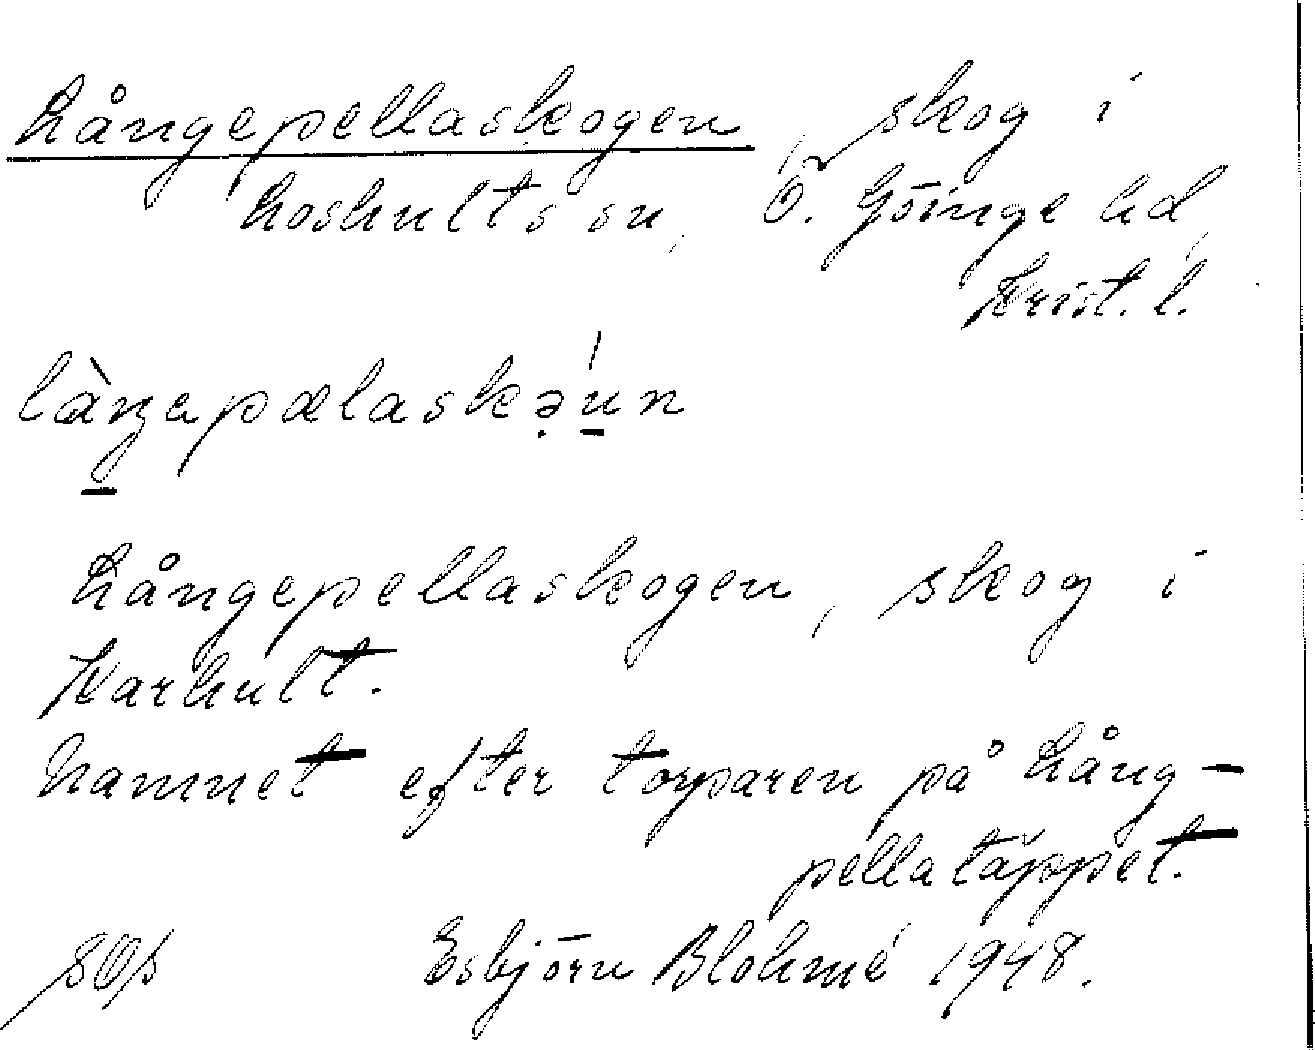 Långepellaskogen, skog i
Loshults sn, Ö. Göinge hd,
Krist. l.
làŋapælaskə̣́un
Långepellaskogen, skog i
Karhult.
Namnet efter torparen på Lång-
pellatäppet.
Esbjörn Blohmé 1948.